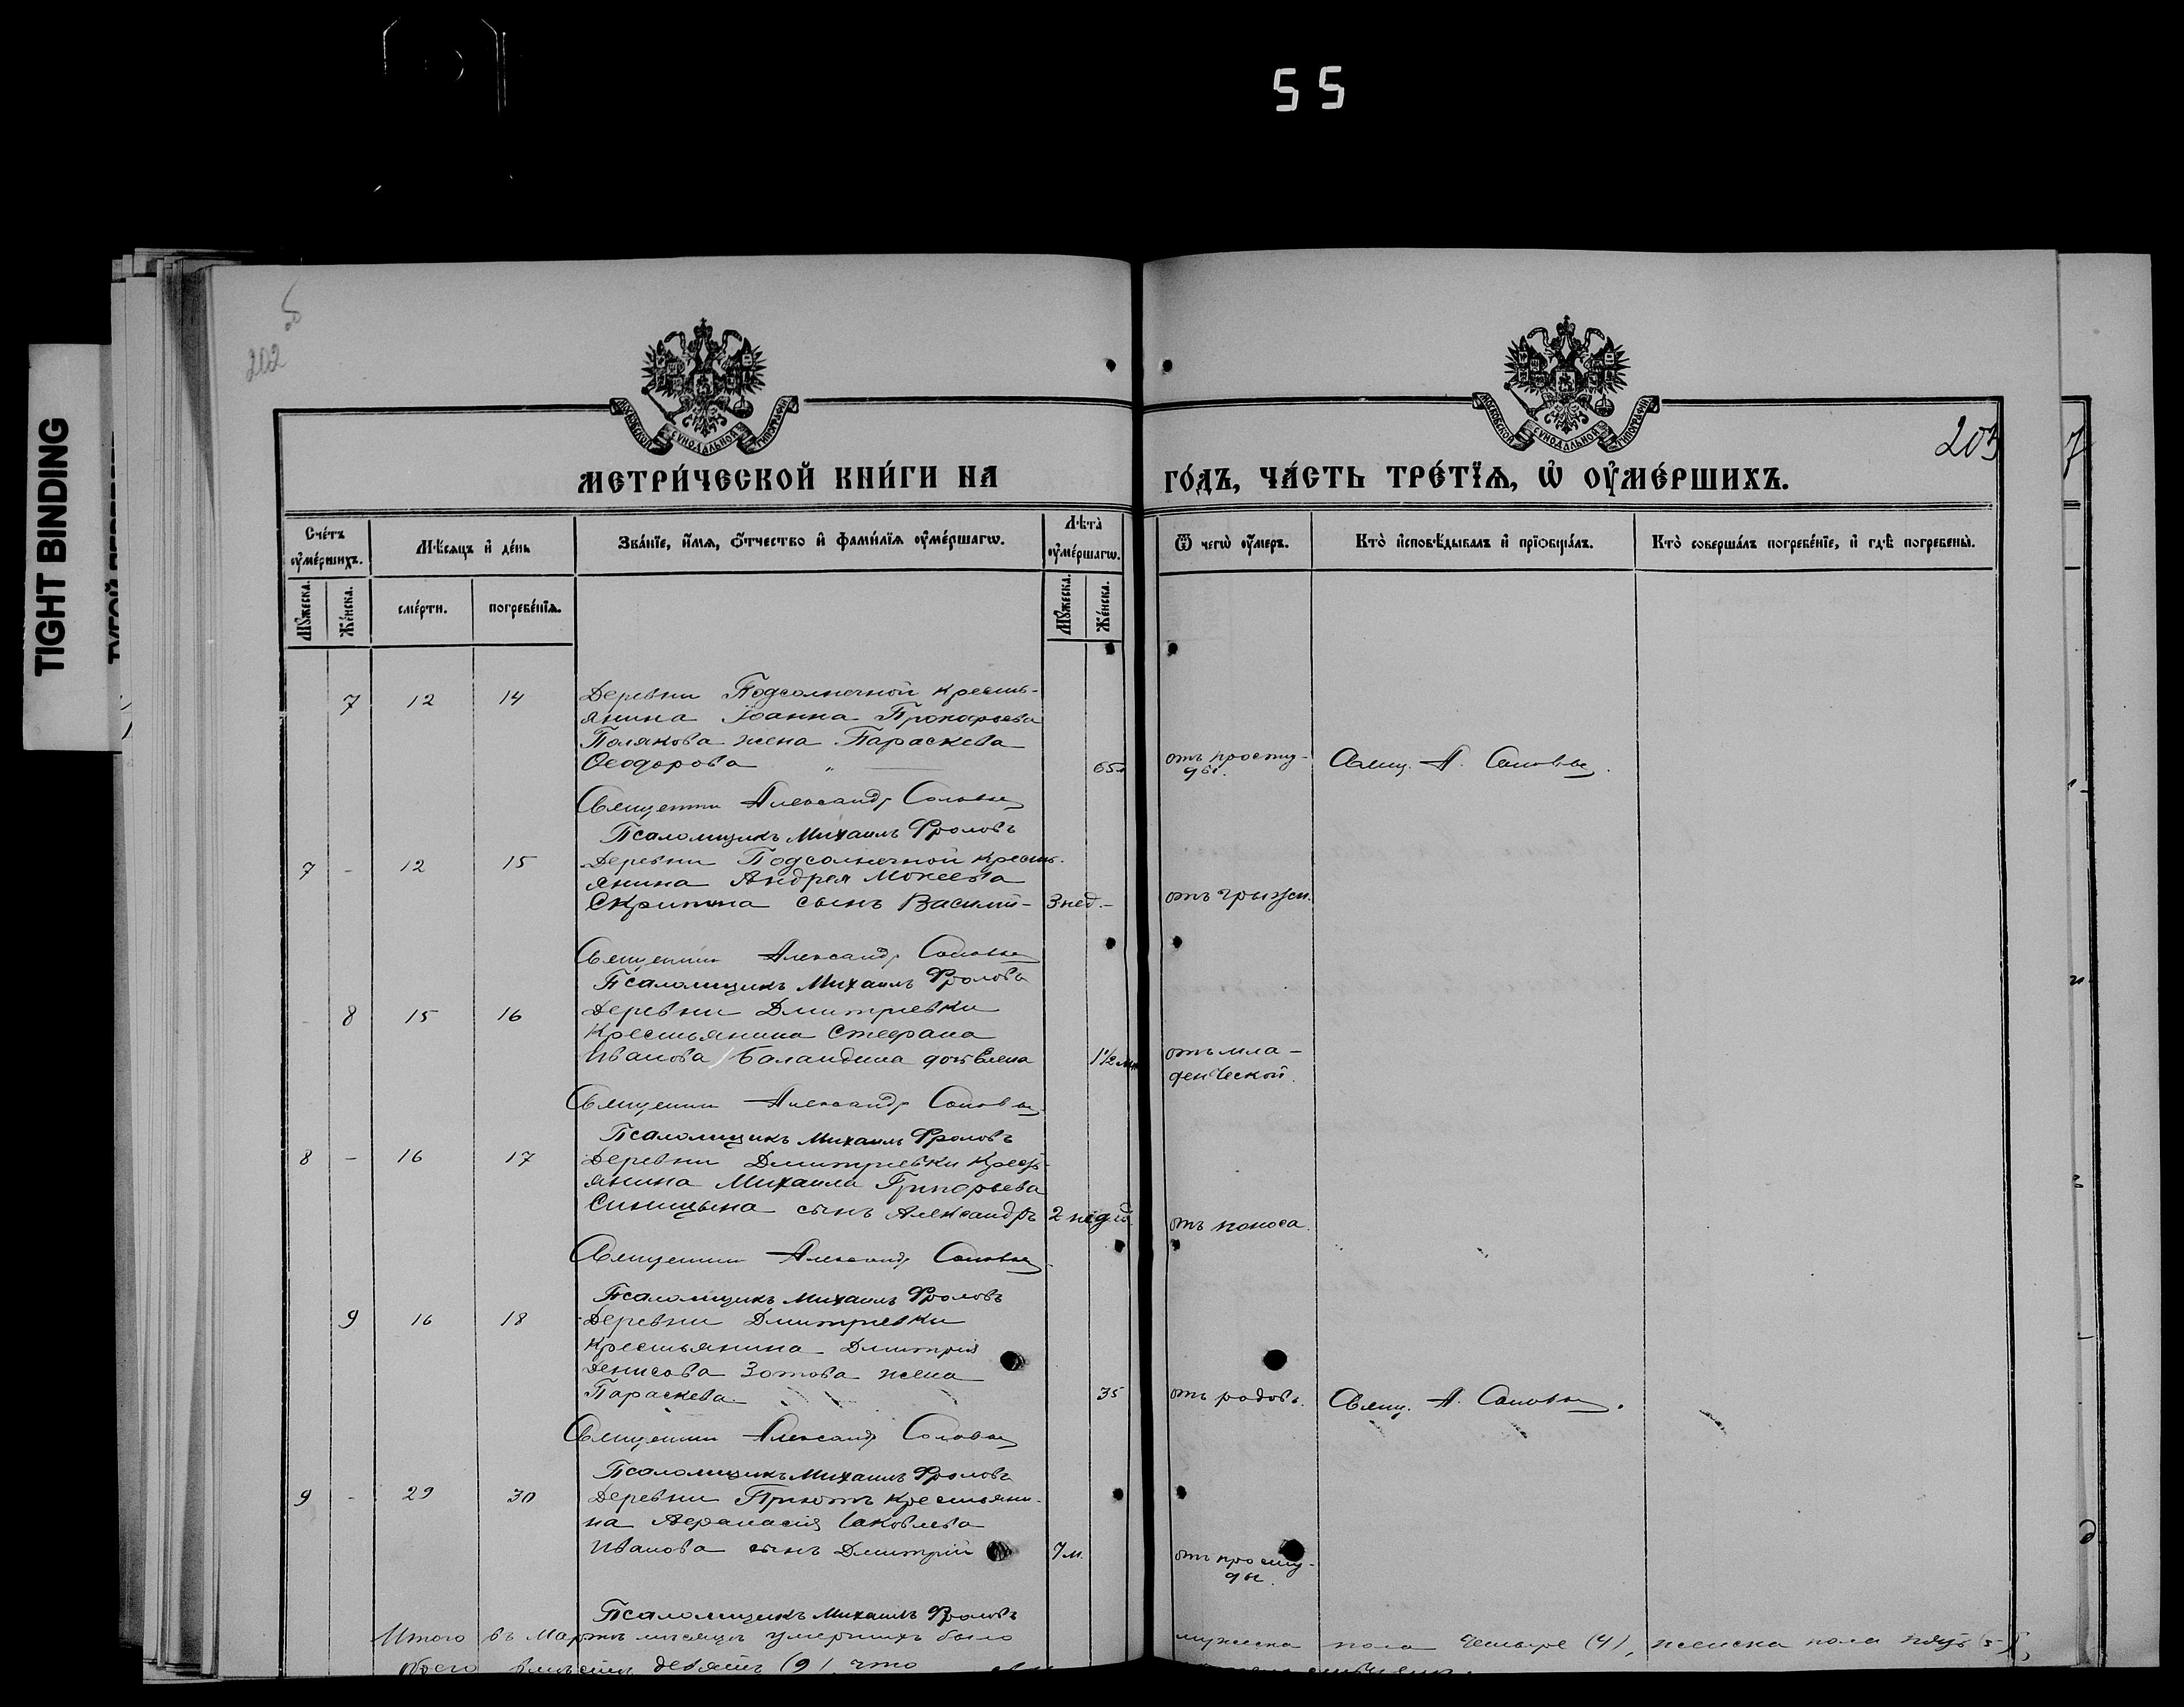 55
TIGHT BINDING
202
203
МОСКОВСКОЙ СѴНОДАЛЬНОЙ ТИПОГРАФІИ
МОСКОВСКОЙ СѴНОДАЛЬНОЙ ТИПОГРАФІИ
МЕТРИ́ЧЕСКОЙ КНИ́ГИ НА ГО́ДЪ, ЧА́СТЬ ТРЕ́ТЇѦ, Ѡ҆ ОУ҆МЕ́РШИХЪ.
Сче́тъ оу҆ме́ршихъ.
Мꙋ́жеска.
Же́нска.
Мѣ́сяцъ и҆ де́нь
сме́рти.
погребе́нїѧ.
Зва́нїе, и҆́мѧ, ѻ҆́тчество и҆ фами́лїѧ оу҆ме́ршагѡ.
Лѣ́та̀ оу҆ме́ршагѡ.
Мꙋ́жеска.
Же́нска.
Ѿ чегѡ̀ оу҆́меръ.
Кто̀ и҆сповѣ́дывалъ и҆ прїѡбща́лъ.
Кто̀ соверша́лъ погребе́нїе, и҆ гдѣ̀ погребены̀.
7 12 14 Деревни Подсолнечной кресть-
янина Іоанна Прокофьева
Полякова жена Параскева
Ѳеодорова " 65 отъ просту-
ды. Свящ. А. Соловьев.
Священник Александр Соловьев
Псаломщикъ Михаилъ Фроловъ
7 - 12 15 Деревни Подсолнечной кресть-
янина Андрея Мокеева
сынъ Василий - 3 нед. - отъ грыжи.
Священник Александр Соловьев
Псаломщикъ Михаилъ Фроловъ
- 8 15 16 Деревни Дмитриевки
Крестьянина Стефана
Иванова Баландина дочь Елена 1½ отъ мла-
денческой.
Священник Александр Соловьев
Псаломщикъ Михаилъ Фроловъ
8 - 16 17 Деревни Дмитриевки Кресть-
янина Михаила Григорьева
Синицына сынъ Александръ 2 недѣл. отъ поноса.
Священник Александр Соловьев
Псаломщикъ Михаилъ Фроловъ
9 16 18 Деревни Дмитриевки
Крестьянина Дмитрія
Денисова Зотова жена
Параскева 35 отъ родовъ. Свящ. А. Соловьев.
Священник Александр Соловьев
Псаломщикъ Михаилъ Фроловъ
9 - 29 30 Деревни Приютъ крестьяни-
на Афанасія Іаковлева
Иванова сынъ Дмитрій 7 м. отъ просту-
ды.
Псаломщикъ Михаилъ Фроловъ
Итого въ Мартѣ мѣсяцѣ умершихъ было мужеска пола четыре (4), женска пола пять (5),
обоего вмѣстѣ девять (9), что